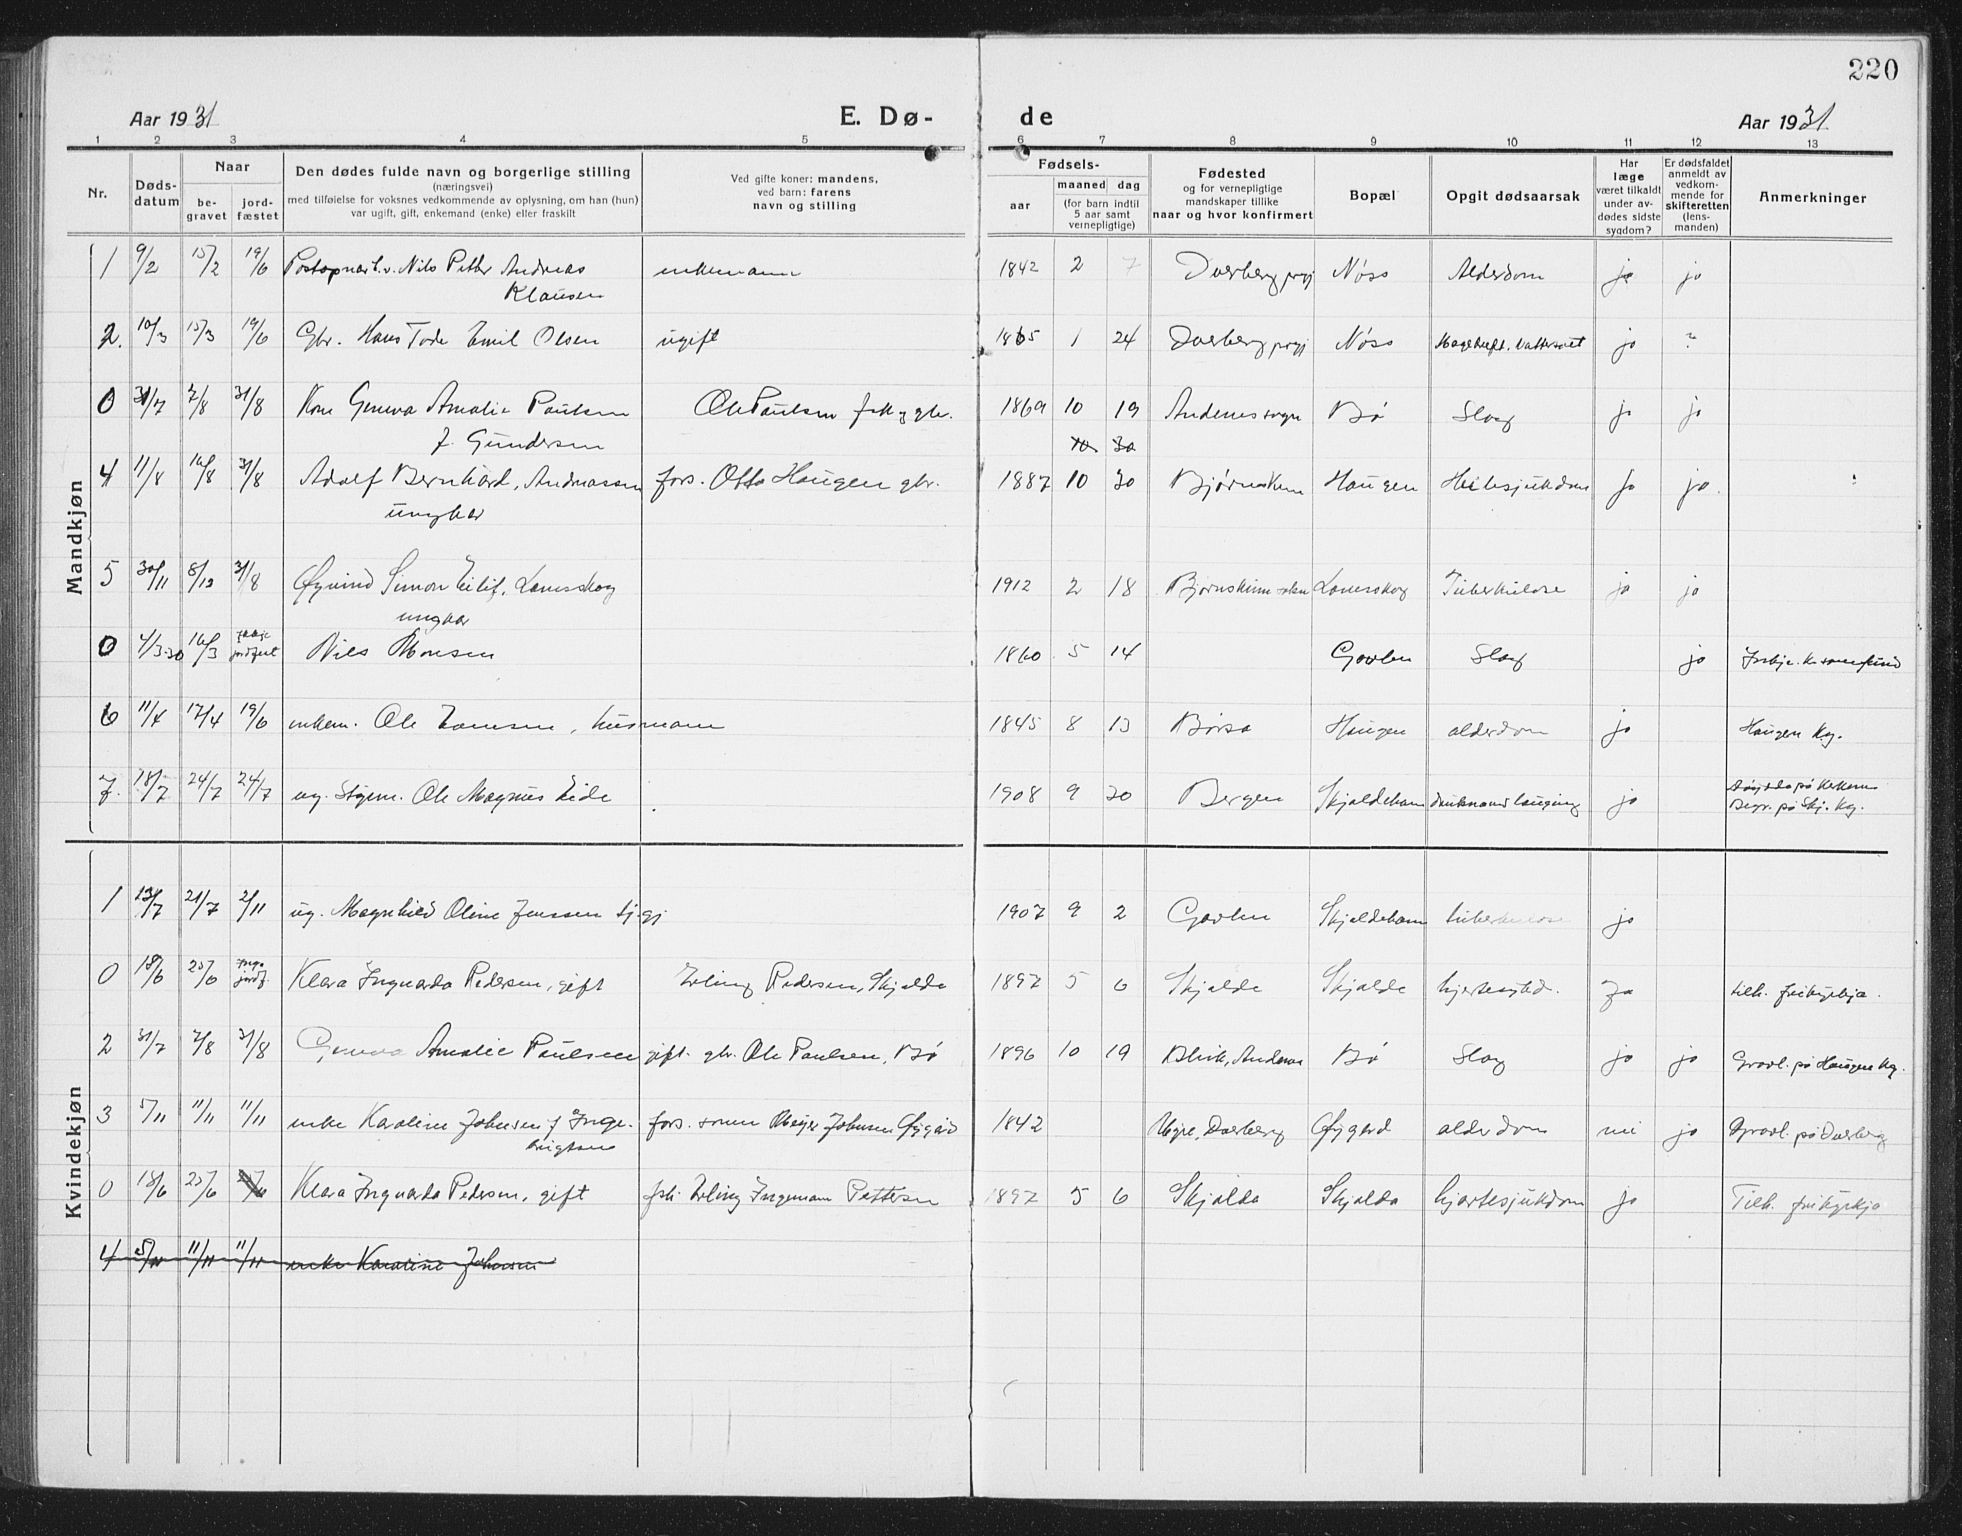 220
Aar 1931 E. Dø- de Aar 1931
1 2 3 4 5 6 7 8 9 10 11 12 13
Nr.
Døds-
datum
Naar
be-
gravet
jord-
fæstet
Den dødes fulde navn og borgerlige stilling
(næringsvei)
med tilføielse for voksnes vedkommende av oplysning, om han (hun)
var ugift, gift, enkemand (enke) eller fraskilt
Ved gifte koner: mandens,
ved barn: farens
navn og stilling
Fødsels-
aar
maaned dag
(for barn indtil
5 aar samt
vernepligtige)
Fødested
og for vernepligtige
mandskaper tillike
naar og hvor konfirmert
Bopæl
Opgit dødsaarsak
Har
læge
været tilkaldt
under av-
dødes sidste
sygdom?
Er dødsfaldet
anmeldt av
vedkom-
mende for
skifteretten
(lens-
manden)
Anmerkninger
Mandkjøn
1 9/2 15/2 19/6 Postopner Nils Petter Andreas enkemann 1842 2 7 Dverberg prgj Nøss Alderdom ja jo
Klausen
2. 10/3 15/3 19/6 Gbr. Hans Tode Emil Olsen ugift 1865 1 24 Dverberg prgj Nøss jo ?
0 31/7 7/8 31/8 Kone Geneva Amalie Paulsen Ole Paulsen fisk og gbr. 1869 10 19 Andenes sogn Bø Slag jo jo
f. Gundersen 10 30
4 11/8 16/8 31/8 Adolf Bernhard, Andreassen fors. Otto Haugen gbr. 1887 10 30 Bjørnskinn Haugen jo jo.
ungkar
5 30/11 8/12 31/8 Øyvind Simon Eilif, Lanesskog 1912 2 18 Bjørnskinn sokn Lanesskog Tuberkulose jo jo
ungkar
0 4/3.30 16/3 Nils Monsen 1860 5 14 Gavlen Slag jo
jordfest
6 11/4 17/4 19/6 enkem. Ole , husmann 1845 8 13 Børsa Haugen alderdom jo Haugen kg.
7. 18/7 24/7 24/7 ug. Styrm. Ole Magnus Eide 1908 9 20 Bergen Skjoldehamn jo
Begr. på Skj. kg.
Kvindekjøn
1 13/7 21/7 2/11 ug. Magnhild Oline Jenssen 1907 9 2 Gavlen Skjoldehamn tuberkulose jo
0 18/6 25/6 jordf. Klara Ingvarda Pedersen, gift Erling Pedersen, Skjolda 1897 5 6 Skjolde Skjolde ja tilh. frikyrkja.
2 31/7 7/8 31/8 Geneva Amalie Paulsen gift. gbr. Ole Paulsen, Bø 1896 10 19 Bleik, Andenes Bø Slag jo jo Gravl. på Haugen kg.
3 5/11 11/11 11/11 enke Karoline Johnsen f. Inge- fors. sønnen Meyer Johnsen Øygard 1842 Myre, Dverberg Øygard alderdom nei jo Gravl. på Dverberg
brigtsen
0 18/6 25/6 Klara Ingvarda Pedersen, gift fsk. Erling Ingemann Pettersen 1897 5 6 Skjolda Skjolda hjartesjukdom jo Tilh. frikyrkja
4 5/11 11/11 11/11 enke Karoline Johnsen